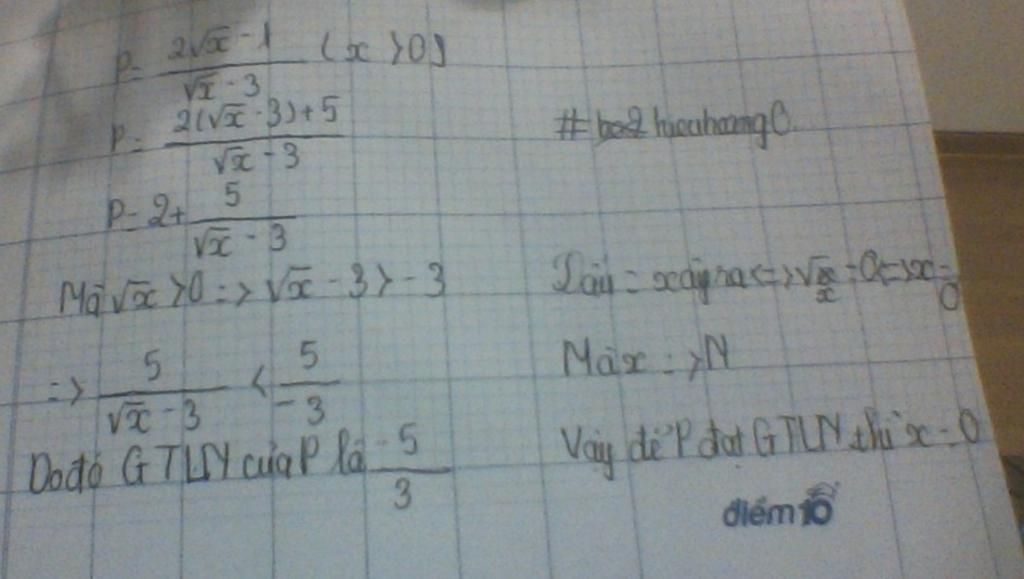 P = \frac{2\sqrt{x} - 1}{\sqrt{x} - 3} (x > 0)
P = \frac{2(\sqrt{x} - 3) + 5}{\sqrt{x} - 3}
P = 2 + \frac{5}{\sqrt{x} - 3}
Mà \sqrt{x} > 0 => \sqrt{x} - 3 > -3
=> \frac{5}{\sqrt{x} - 3} < \frac{5}{-3}
Do đó GTLN của P là \frac{-5}{3}
Dấu = xảy ra <=> = 0 <=> x = 0
Mà x => N
Vậy để P đạt GTLN thì x = 0
điểm 10